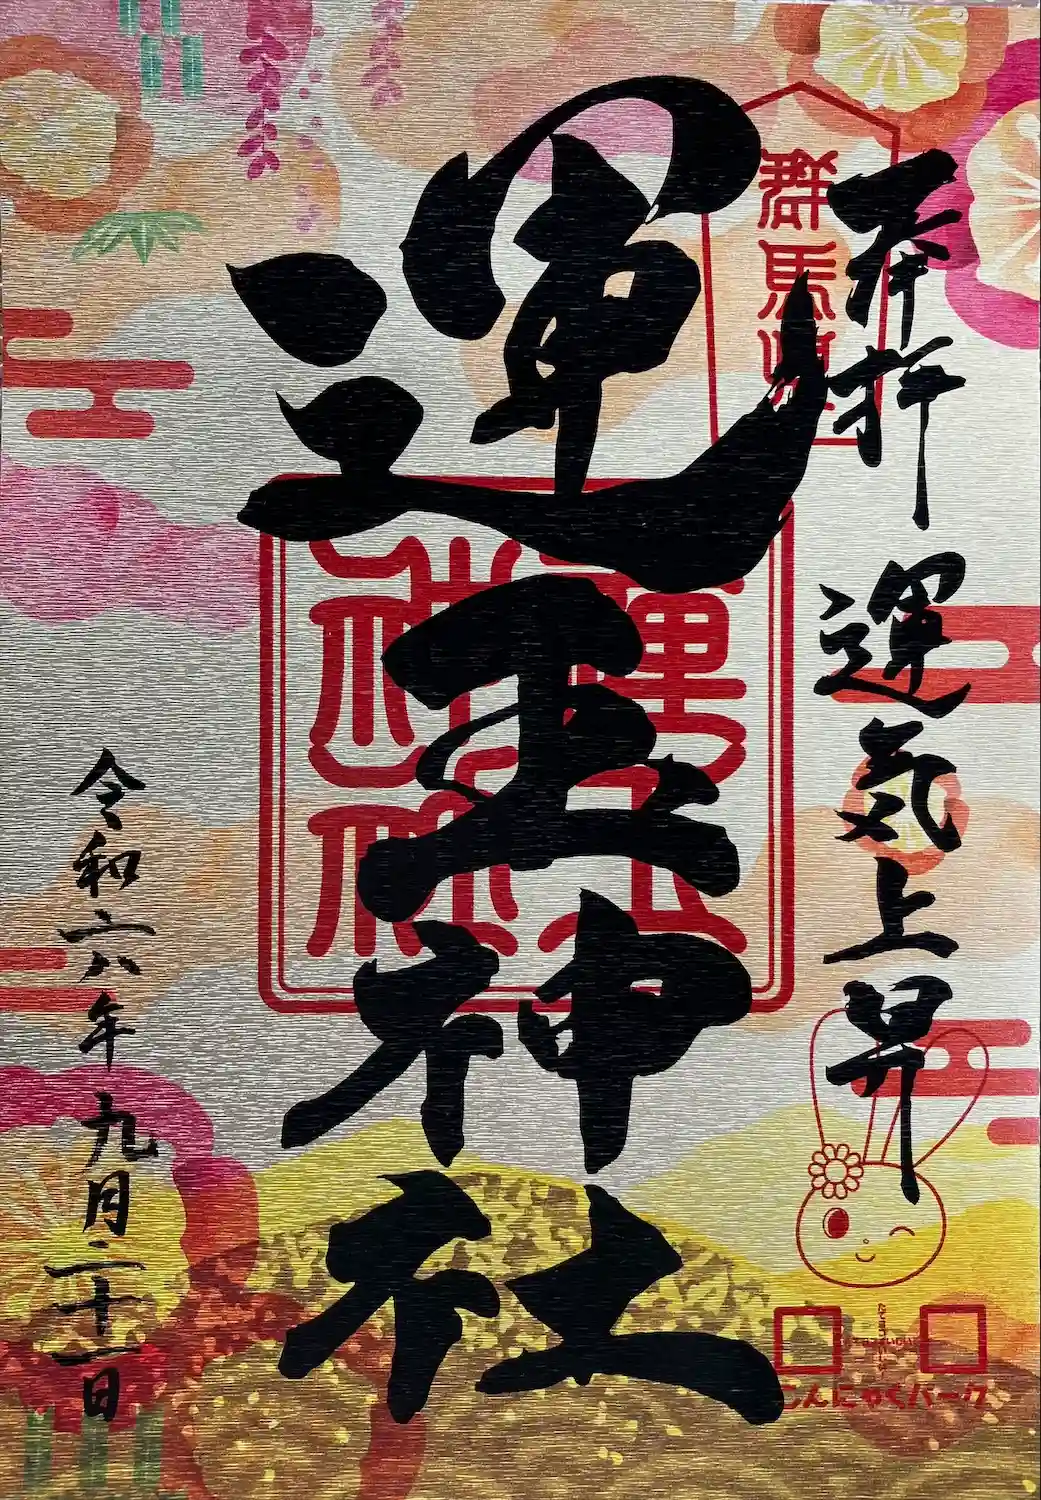 奉拝
運気上昇
群馬県
運玉神社
運玉
神社
こんにゃくパーク
令和六年九月二十一日